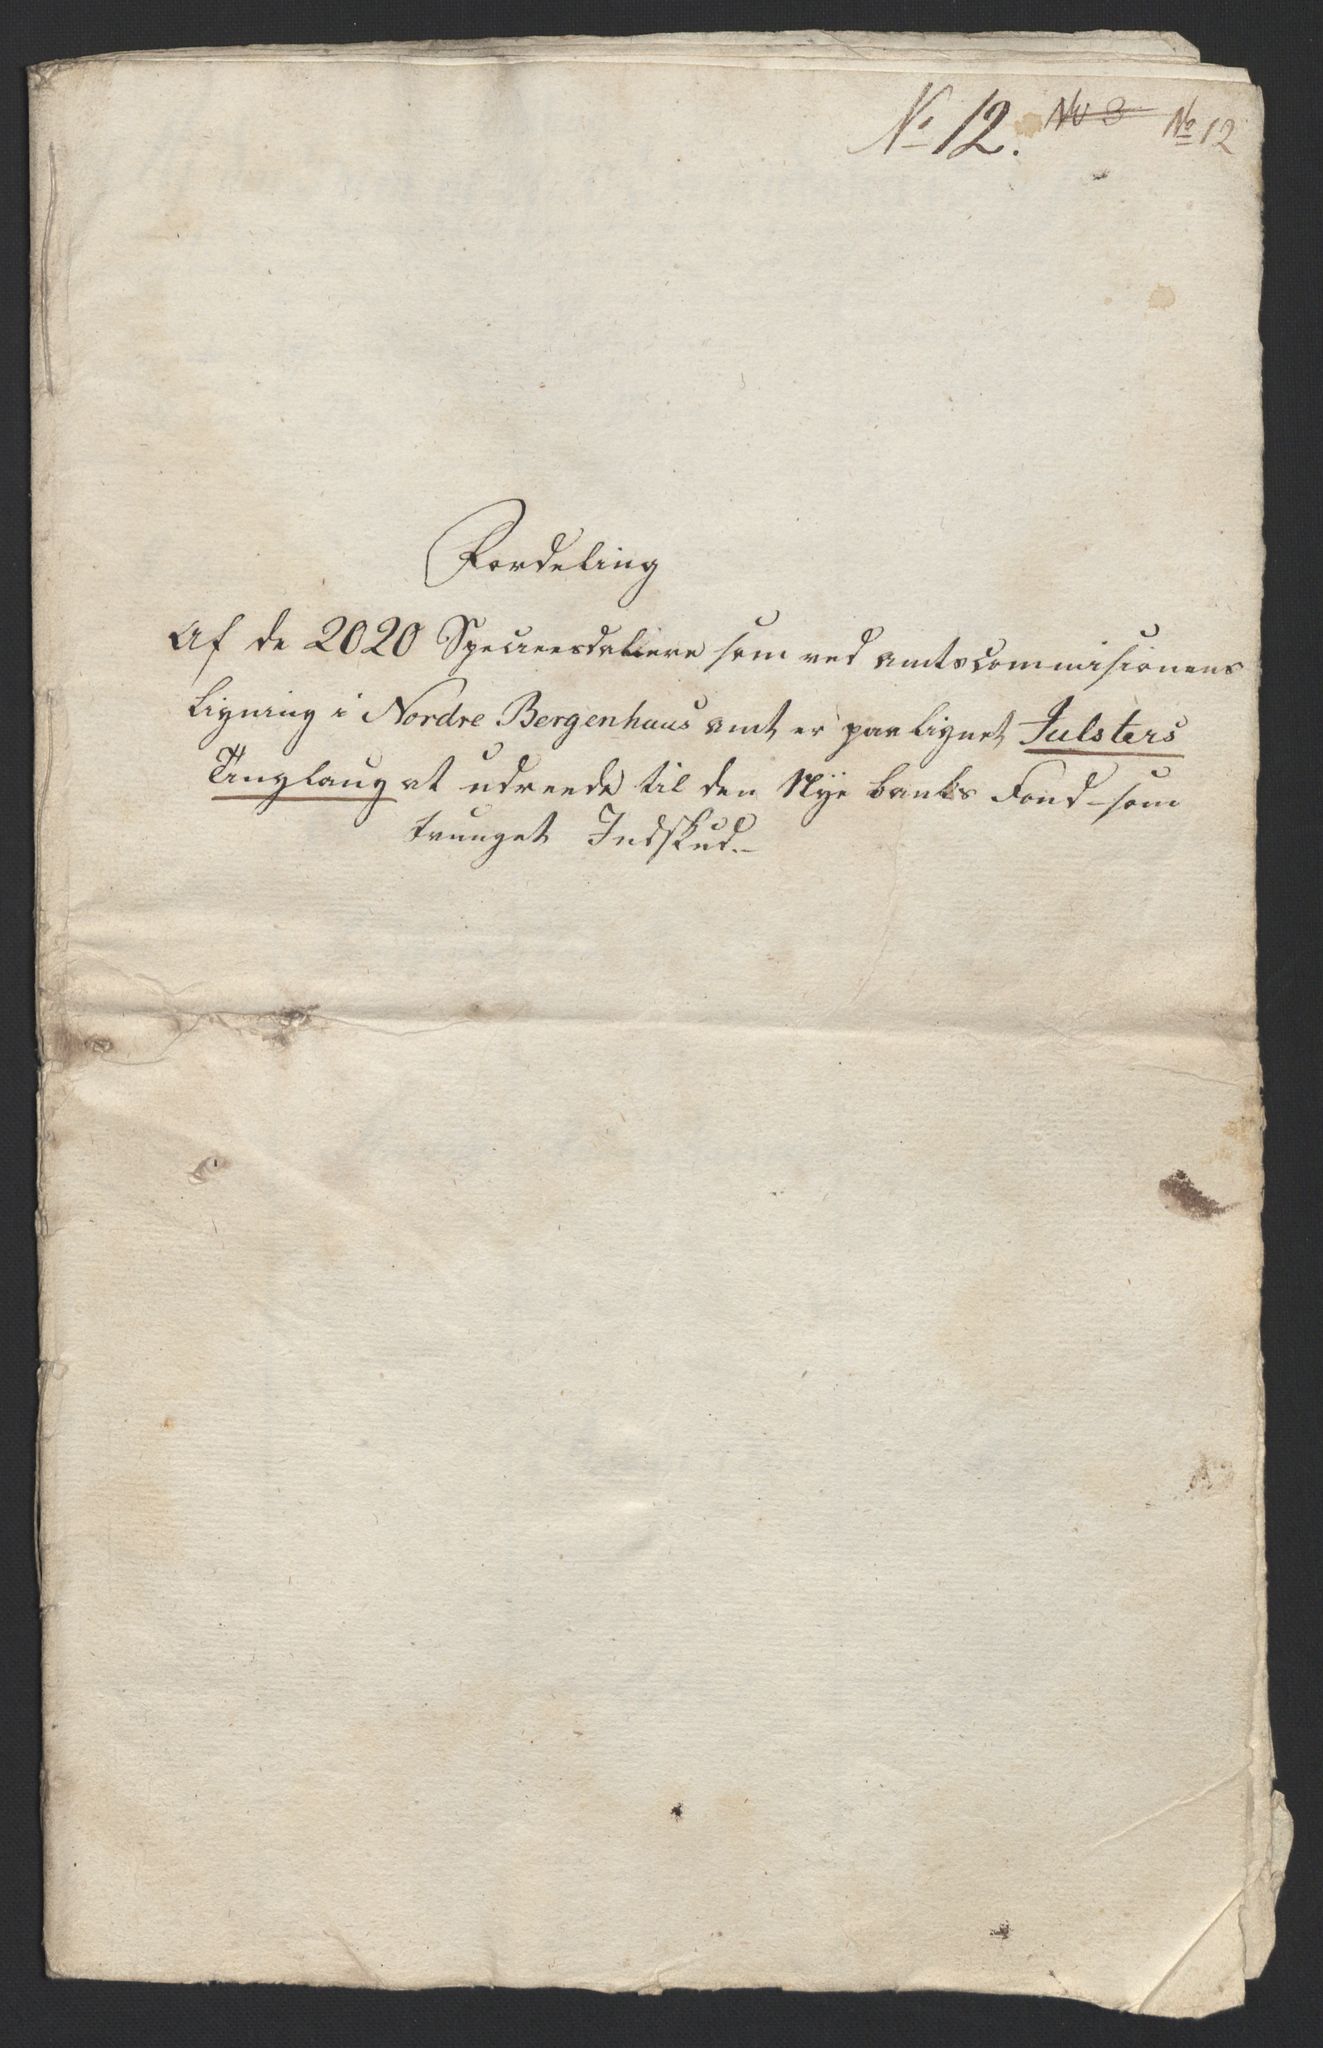 No 12. No 3 No 12
Fordeling
Af de 2020 Speciesdalere som ved amtscommisionens
Ligning i Nordre Bergenhuus amt er paalignet Julsters
Tinglaug at udreede til den Nye banks Fond som
tvunget Indskud.